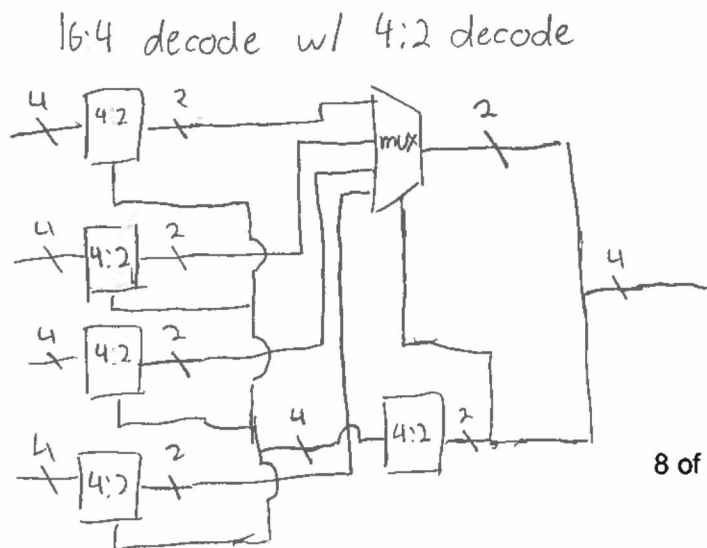 16:4 decode w/ 4:2 decode
4 4:2 2
mux
2
4 4:2 2
4
4 4:2 2
4 4:2 2
4 4:2 2
8 of